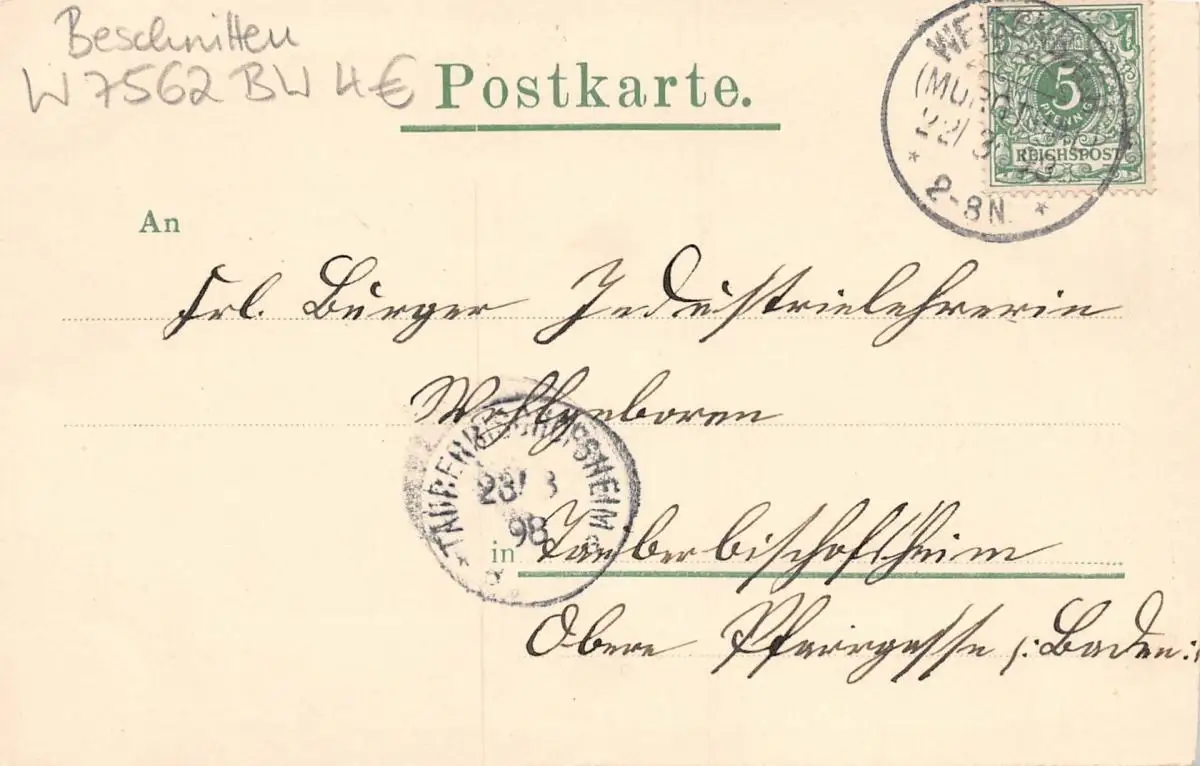 Beschnitten
W 7562 BW 4€
Postkarte.
(MURGTHAL)
22/3 98
* 2-3N. *
5
PFENNIG
REICHSPOST
An
Frl. Bürger Industrielehrerin
Wohlgeboren
* TAUBERBISCHOFSHEIM *
23/ 3
98
in Tauberbischofsheim
Obere Pfarrgasse /: Baden :/